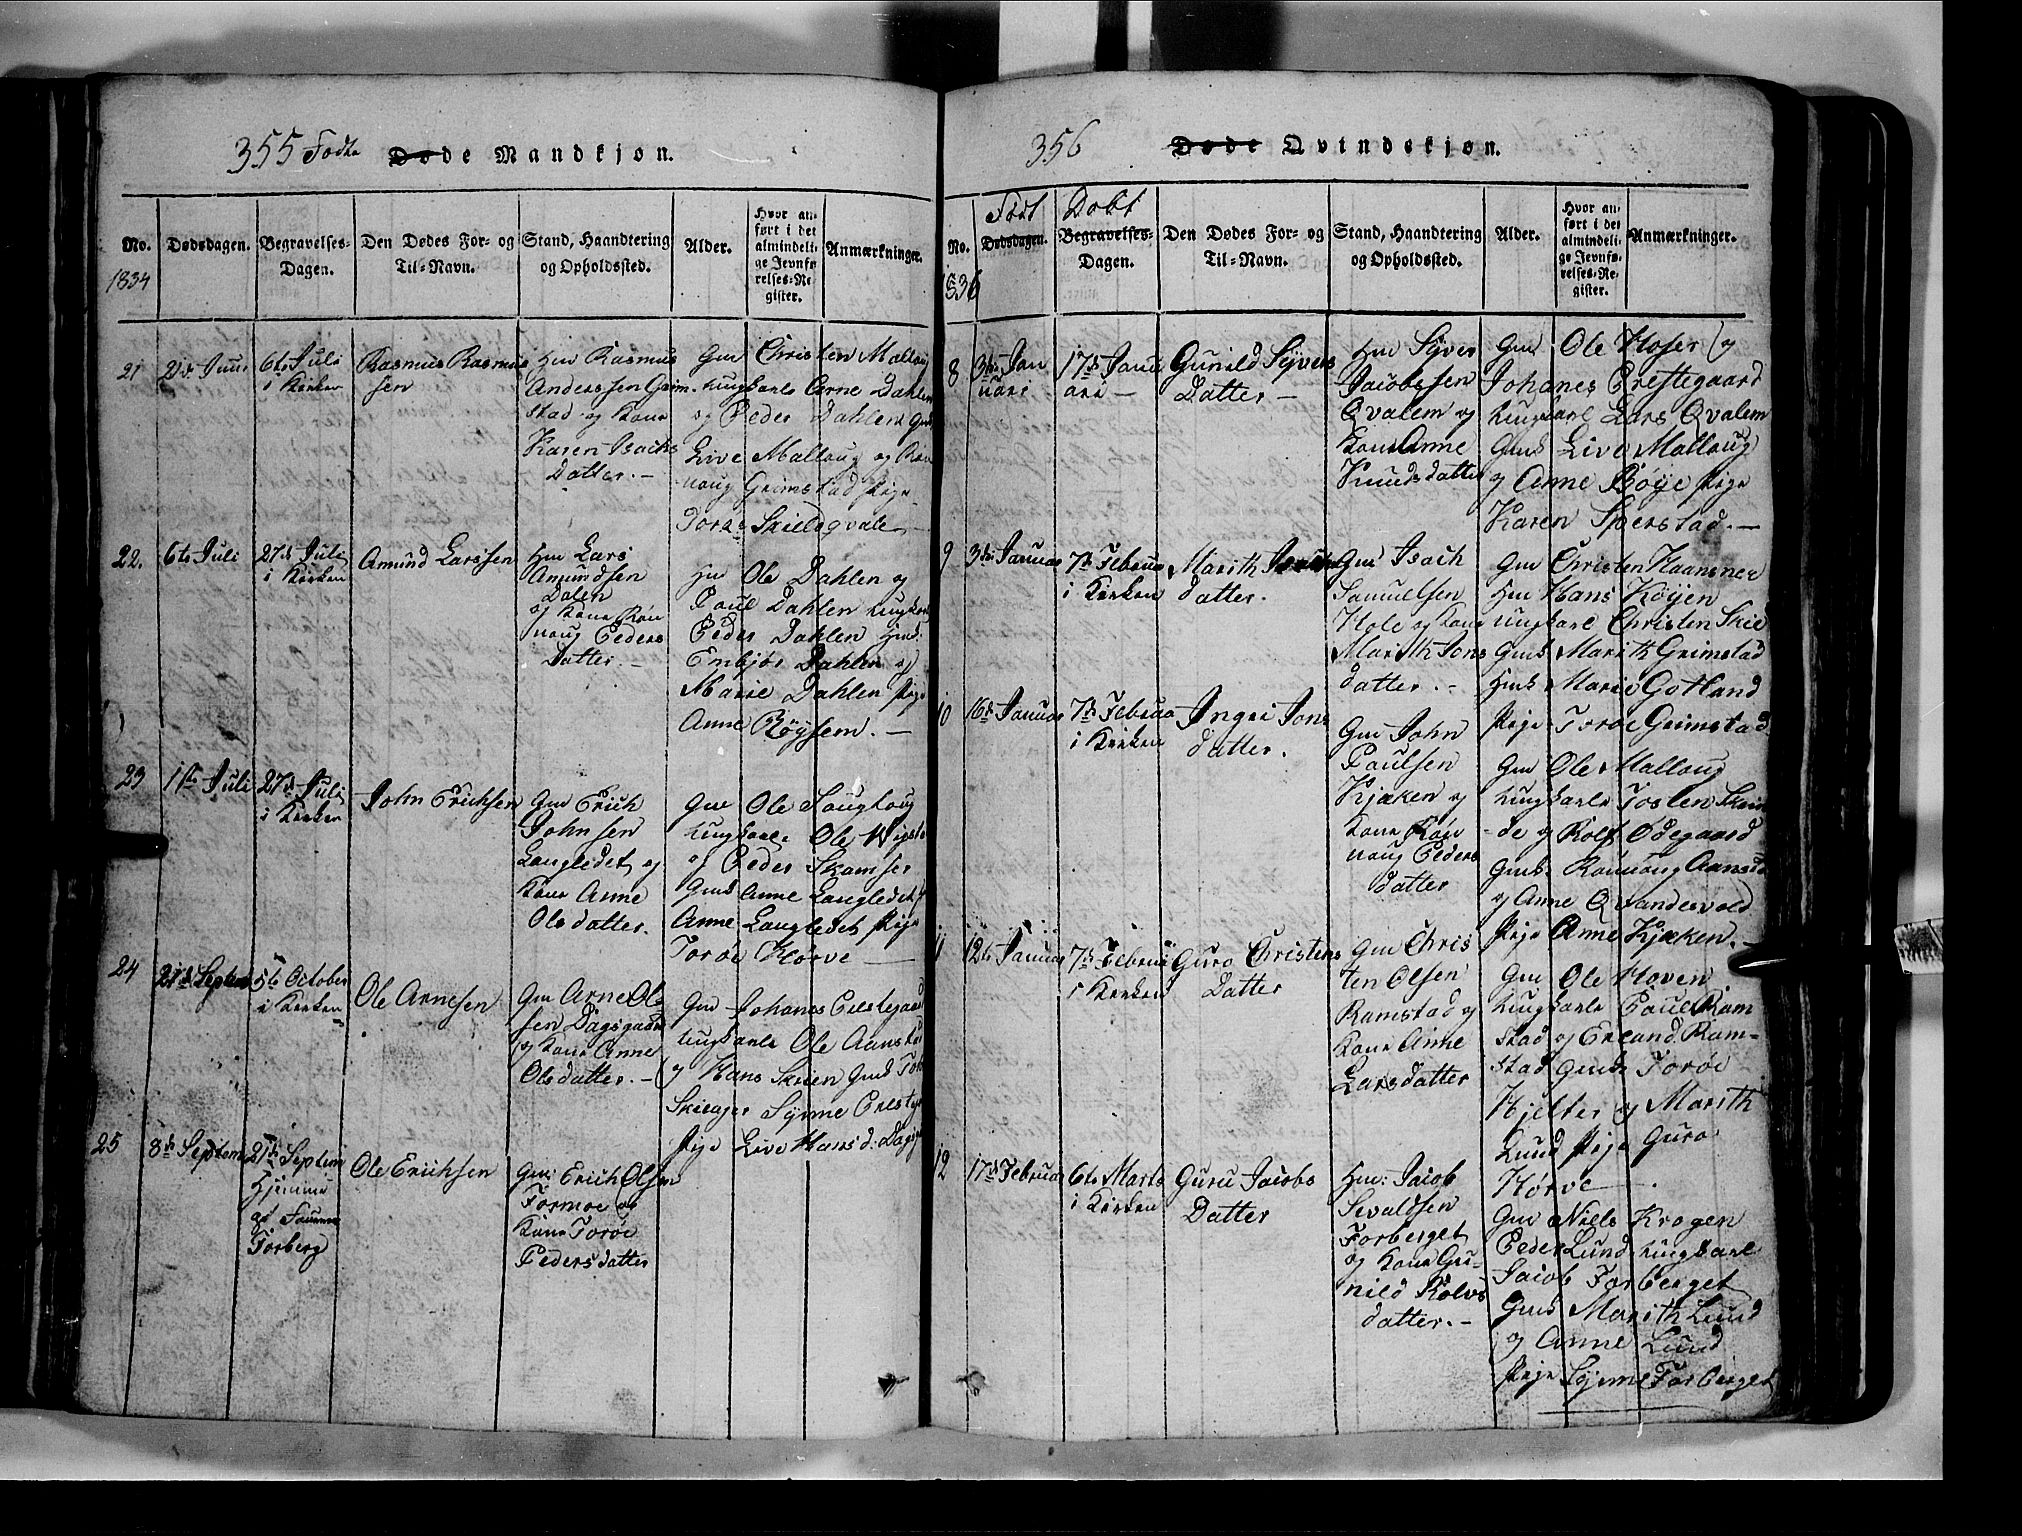 355 Fødte Døde Mandkjøn.
No. Dødsdagen. Begravelses-Dagen. Den Dødes For- og Til-Navn. Stand, Haandtering og Opholdssted. Alder. Hvor anført i det almindelige Jevnførelses-Register. Anmærkninger.
1834
21 21de Juni 6te Juli i Kirken
Rasmus Rasmus
sen
Hm Rasmus
Anderssen Grim
stad og Kone
Karen Isachs
Datter. -
Gm Christen Mallaug
ungkarle Arne Dahlen
og Peder Dahlen Gm
Live Mallaug og Røn
noug Grimstad Pige
Torøe Skielsqvale -
22. 6te Juli 27de Juli i Kirken
Amund Larssen
Hm Lars
Amundsen
Dalen
og Kone Røn
noug Peders
Datter. -
Hm Ole Dahlen og
Paul Dahlen ungkarl
Peder Dahlen Hmd:
Embjør Dahlen og
Marie Dahlen Pige
Anne Røysem. -
23 1ste Juli 27de Juli i Kirken
John Erichsen
Gm Erich
Johnsen
Langledet og
Kone Anne
Olsdatter.
Gm Ole Haugloug
ungkarle Ole Wigste
og Peder Skamser
Gmds Anne Langledet
Anne Langledet Pige
Torøe Hørve
24 21de Septem 5te October i Kirken
Ole Arnesen
Gm Arne Ols
sen Dagsgaard
og Kone Anne
Olsdatter. -
Gm Johanes Prestegaard
ungkarle Ole Aanstad
og Hans Skieen Gmds Torø
Skieager Synne Presteg
Pige Live Hans d: Dagsg
25 8de Septem 27de Septem
Hjemme
af
Forberg
Ole Erichsen
Gm: Erich Olsen
Formoe og
Kone Torøe
Pedersdatter
356 Døde Qvindekjøn.
Født Døbt
No. Dødsdagen. Begravelses-Dagen. Den Dødes For- og Til-Navn. Stand, Haandtering og Opholdssted. Alder. Hvor anført i det almindelige Jevnførelses-Register. Anmærkninger.
1836
8 3die Januari 17de Januari -
Gunild Syvers
Datter -
Hm Syver
Jacobssen
Qvalem og
Kone Anne
Knudsdatter
Gm Ole Hoser og
Johanes Prestegaard
ungkarl Lars Qvalem
Gmds Live Mallaug
og Anne Bøye Pige
Karen Sperstad. -
9 3die Januar 7de Februar i Kirken
Marith Isachs
datter. -
Gm Isach
Samuelsen
Hole og Kone
Marith Jons
datter. -
Gm Christen Haansner
Hm Hans Køyen
ungkarl Christen Skie
Gmds Marith Grimstad
Hmds Marie Gotland
Pige Torøe Grimstad
10 16de Januar 7de Februar i Kirken
Ingri Jons
datter.
Gm John
Paulsen
Kjæken og
Kone Røn
noug Peders
datter
Gm Ole Mallaug
ungkarle Tosten Skam
de og Rolf Ødegaard
Gmds. Rønnoug Aanstad
og Anne Qvandesvold
Pige Anne Kjæken. -
11 12te Januar 7de Februar i Kirken
Guro Christens
Datter
Gm Chris
ten Olsen
Ramstad og
Kone Anne
Larsdatter
Gm Ole Hoven
ungkarle Paul Ram
stad og Erland Ram-
stad Gmds Torøe
Hjelter og Marith
Lund Pige Guro
Hørve
12 17de Februar 6te Marts i Kirken
Guru Jacobs
Datter
Hm: Jacob
Sivaldsen
Forberget
og Kone Gu-
nild Rolvs
datter. -
Gm Niels Krogen
Peder Lund ungkarl
Jacob Forberget
Gmds Marith Lund
og Anne Lund
Pige Synne Forberget